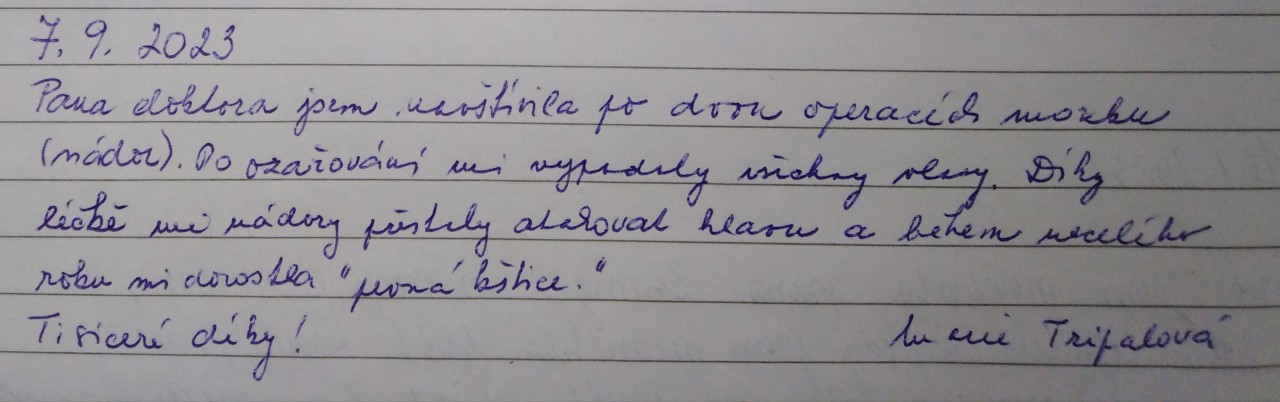 7. 9. 2023
Pana doktora jsem navštívila po dvou operacích mozku
(nádor). Po ozařování mi vypadaly všechny vlasy. Díky
léčbě mi nádory přestaly atakovat hlavu a během necelého
roku mi dorostla "pevná kštice."
Tisiceré díky! Lucie Tripalová